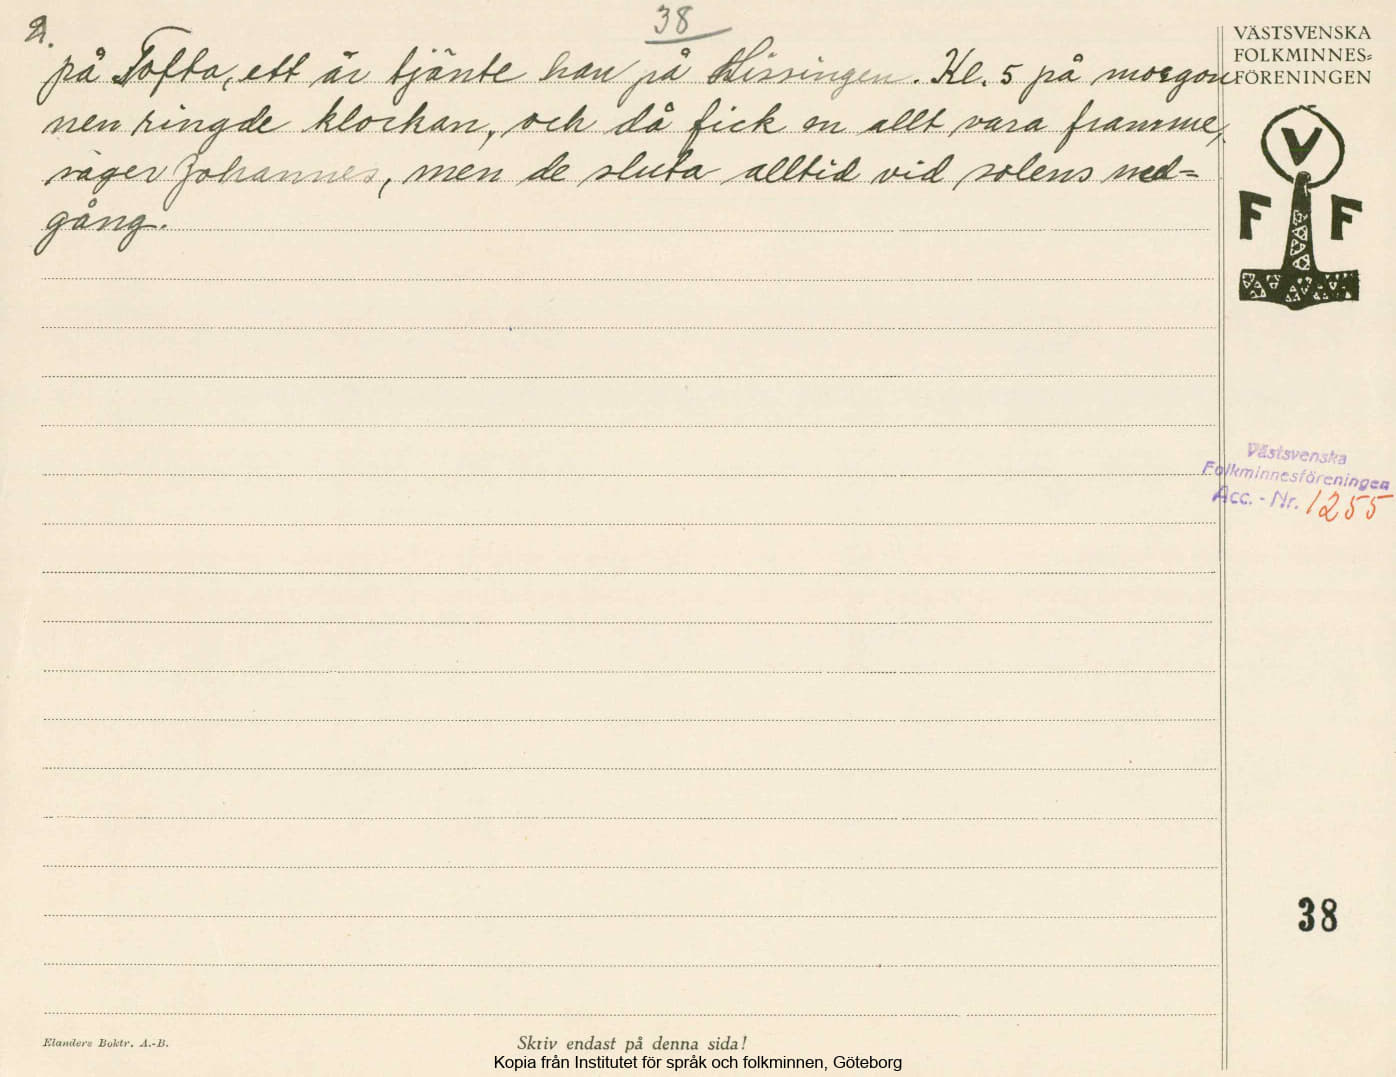 2.
38
på Tofta, ett år tjänte han på Hissingen. Kl. 5 på morgon
nen ringde klockan, och då fick en allt vara framme,
säger Johannes, men de sluta alltid vid solens ned=
gång.
VÄSTSVENSKA
FOLKMINNES=
FÖRENINGEN
V
F F
Västsvenska
Folkminnesföreningen
Acc. - Nr. 1255
38
Elanders Boktr. A.-B.
Skriv endast på denna sida!
Kopia från Institutet för språk och folkminnen, Göteborg